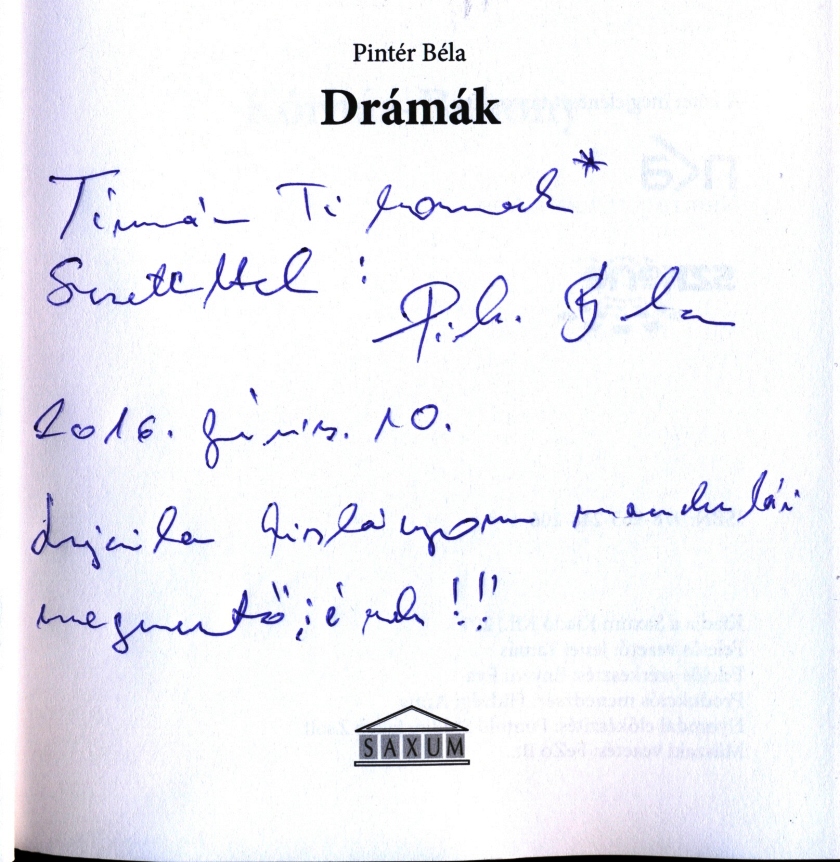 Pintér Béla
Drámák
Tirmán Ti kornak*
Szeretettel :
P. Béla
2016. június. 10.
kislányom mandulái
megmentőjének !!!
SAXUM